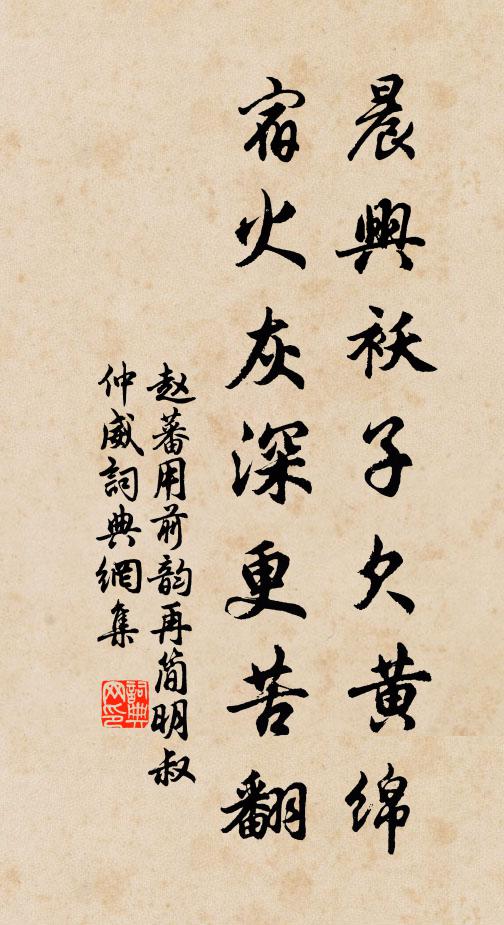 晨興袄子欠黄綿
宿火灰深更苦翻
赵蕃用前韵再简明叔
仲威詞典網集
詞典网印